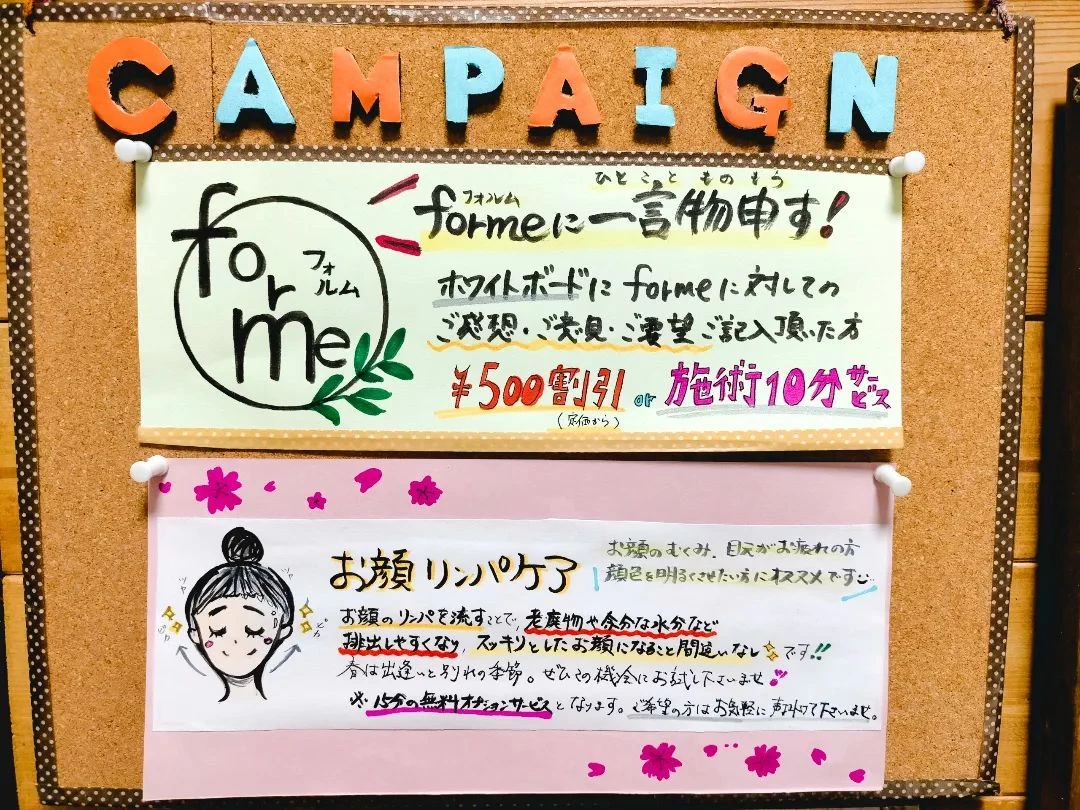 CAMPAIGN
for
me
フォルム
ひとこと ものもう
フォルム
formeに一言物申す!
ホワイトボードに formeに対しての
ご感想・ご意見・ご要望 ご記入頂いた方
¥500割引 or 施術10分サービス
(定価から)
お顔リンパケア
お顔のむくみ、目元がお疲れの方
顔色を明るくさせたい方にオススメです
お顔のリンパを流すことで、老廃物や余分な水分など
排出しやすくなり、スッキリとしたお顔になること間違いなしです!!
春は出逢いと別れの季節。ぜひこの機会にお試し下さいませ
※15分の無料オプションサービスとなります。ご希望の方はお気軽に声掛けて下さいませ。